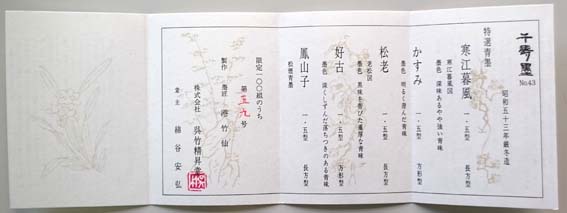 千寿墨
No.43
昭和五十三年厳冬造
特選青墨
寒江暮風 一・五型 長方型
寒江暮風図
墨色 深味あるやや強い青味
かすみ 一・五型 方形型
墨色 明るく澄んだ青味
松老 一・五型 方形型
老松図
墨色 黒味を帯びた重厚な青味
好古 一・五型 長方型
墨色 深くしずんだ落ちつきのある青味
鳳山子 一・五型 長方型
松煙青墨
限定一〇〇組のうち
第五九号
製作 墨匠 港竹仙
株式会社 呉竹精昇堂
当主 綿谷安弘